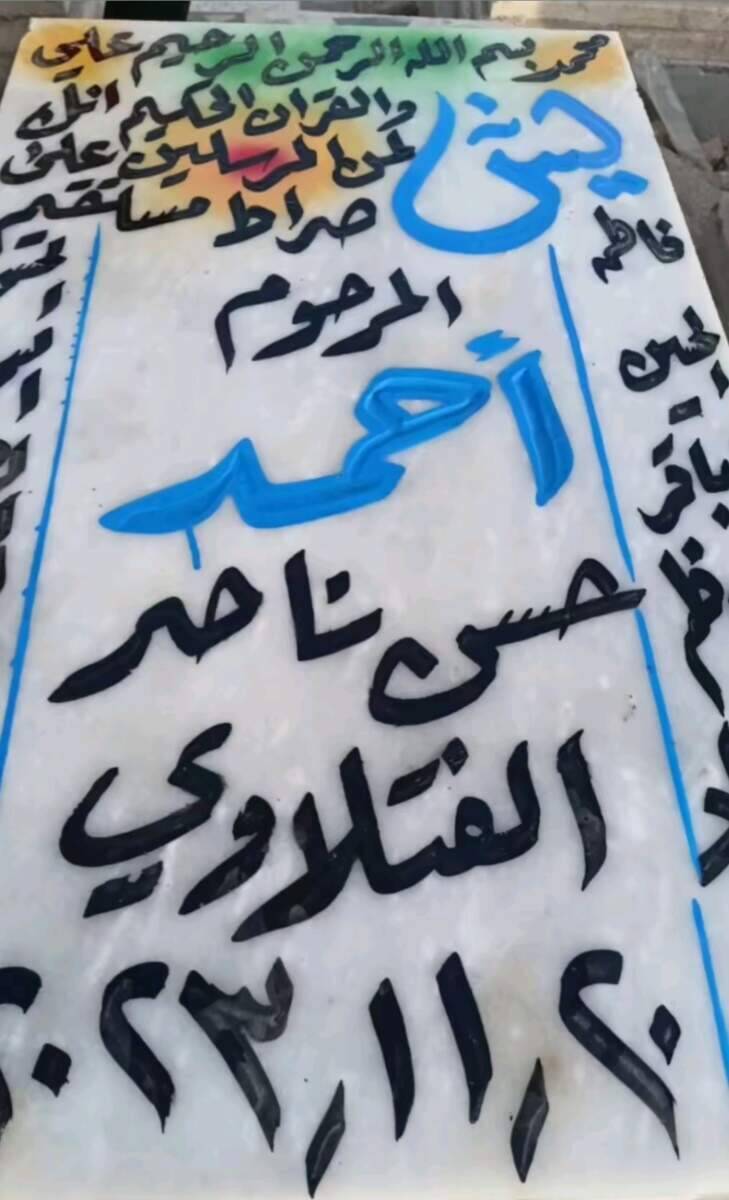 محمد بسم الله الرحمن الرحيم علي
يس والقران الحكيم انك
لمن المرسلين على
صراط مستقيم
فاطمة
المرحوم
الحسين
أحمد
باقر
حسن ناصر
الفتلاوي
٢٠/١١/٢٠٢٣